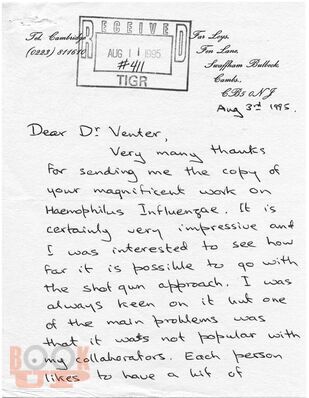 Tel. Cambridge
(0223) 811610
RECEIVED
AUG 11 1995
#411
TIGR
Far Leys,
Fen Lane,
Swaffham Bulbeck,
Cambs.,
CB5 0NJ
Aug 3rd 1995.
Dear Dr Venter,
Very many thanks
for sending me the copy of
your magnificent work on
Haemophilus Influenzae. It is
certainly very impressive and
I was interested to see how
far it is possible to go with
the shot gun approach. I was
always keen on it but one
of the main problems was
that it was not popular with
my collaborators. Each person
likes to have a bit of
BOOK